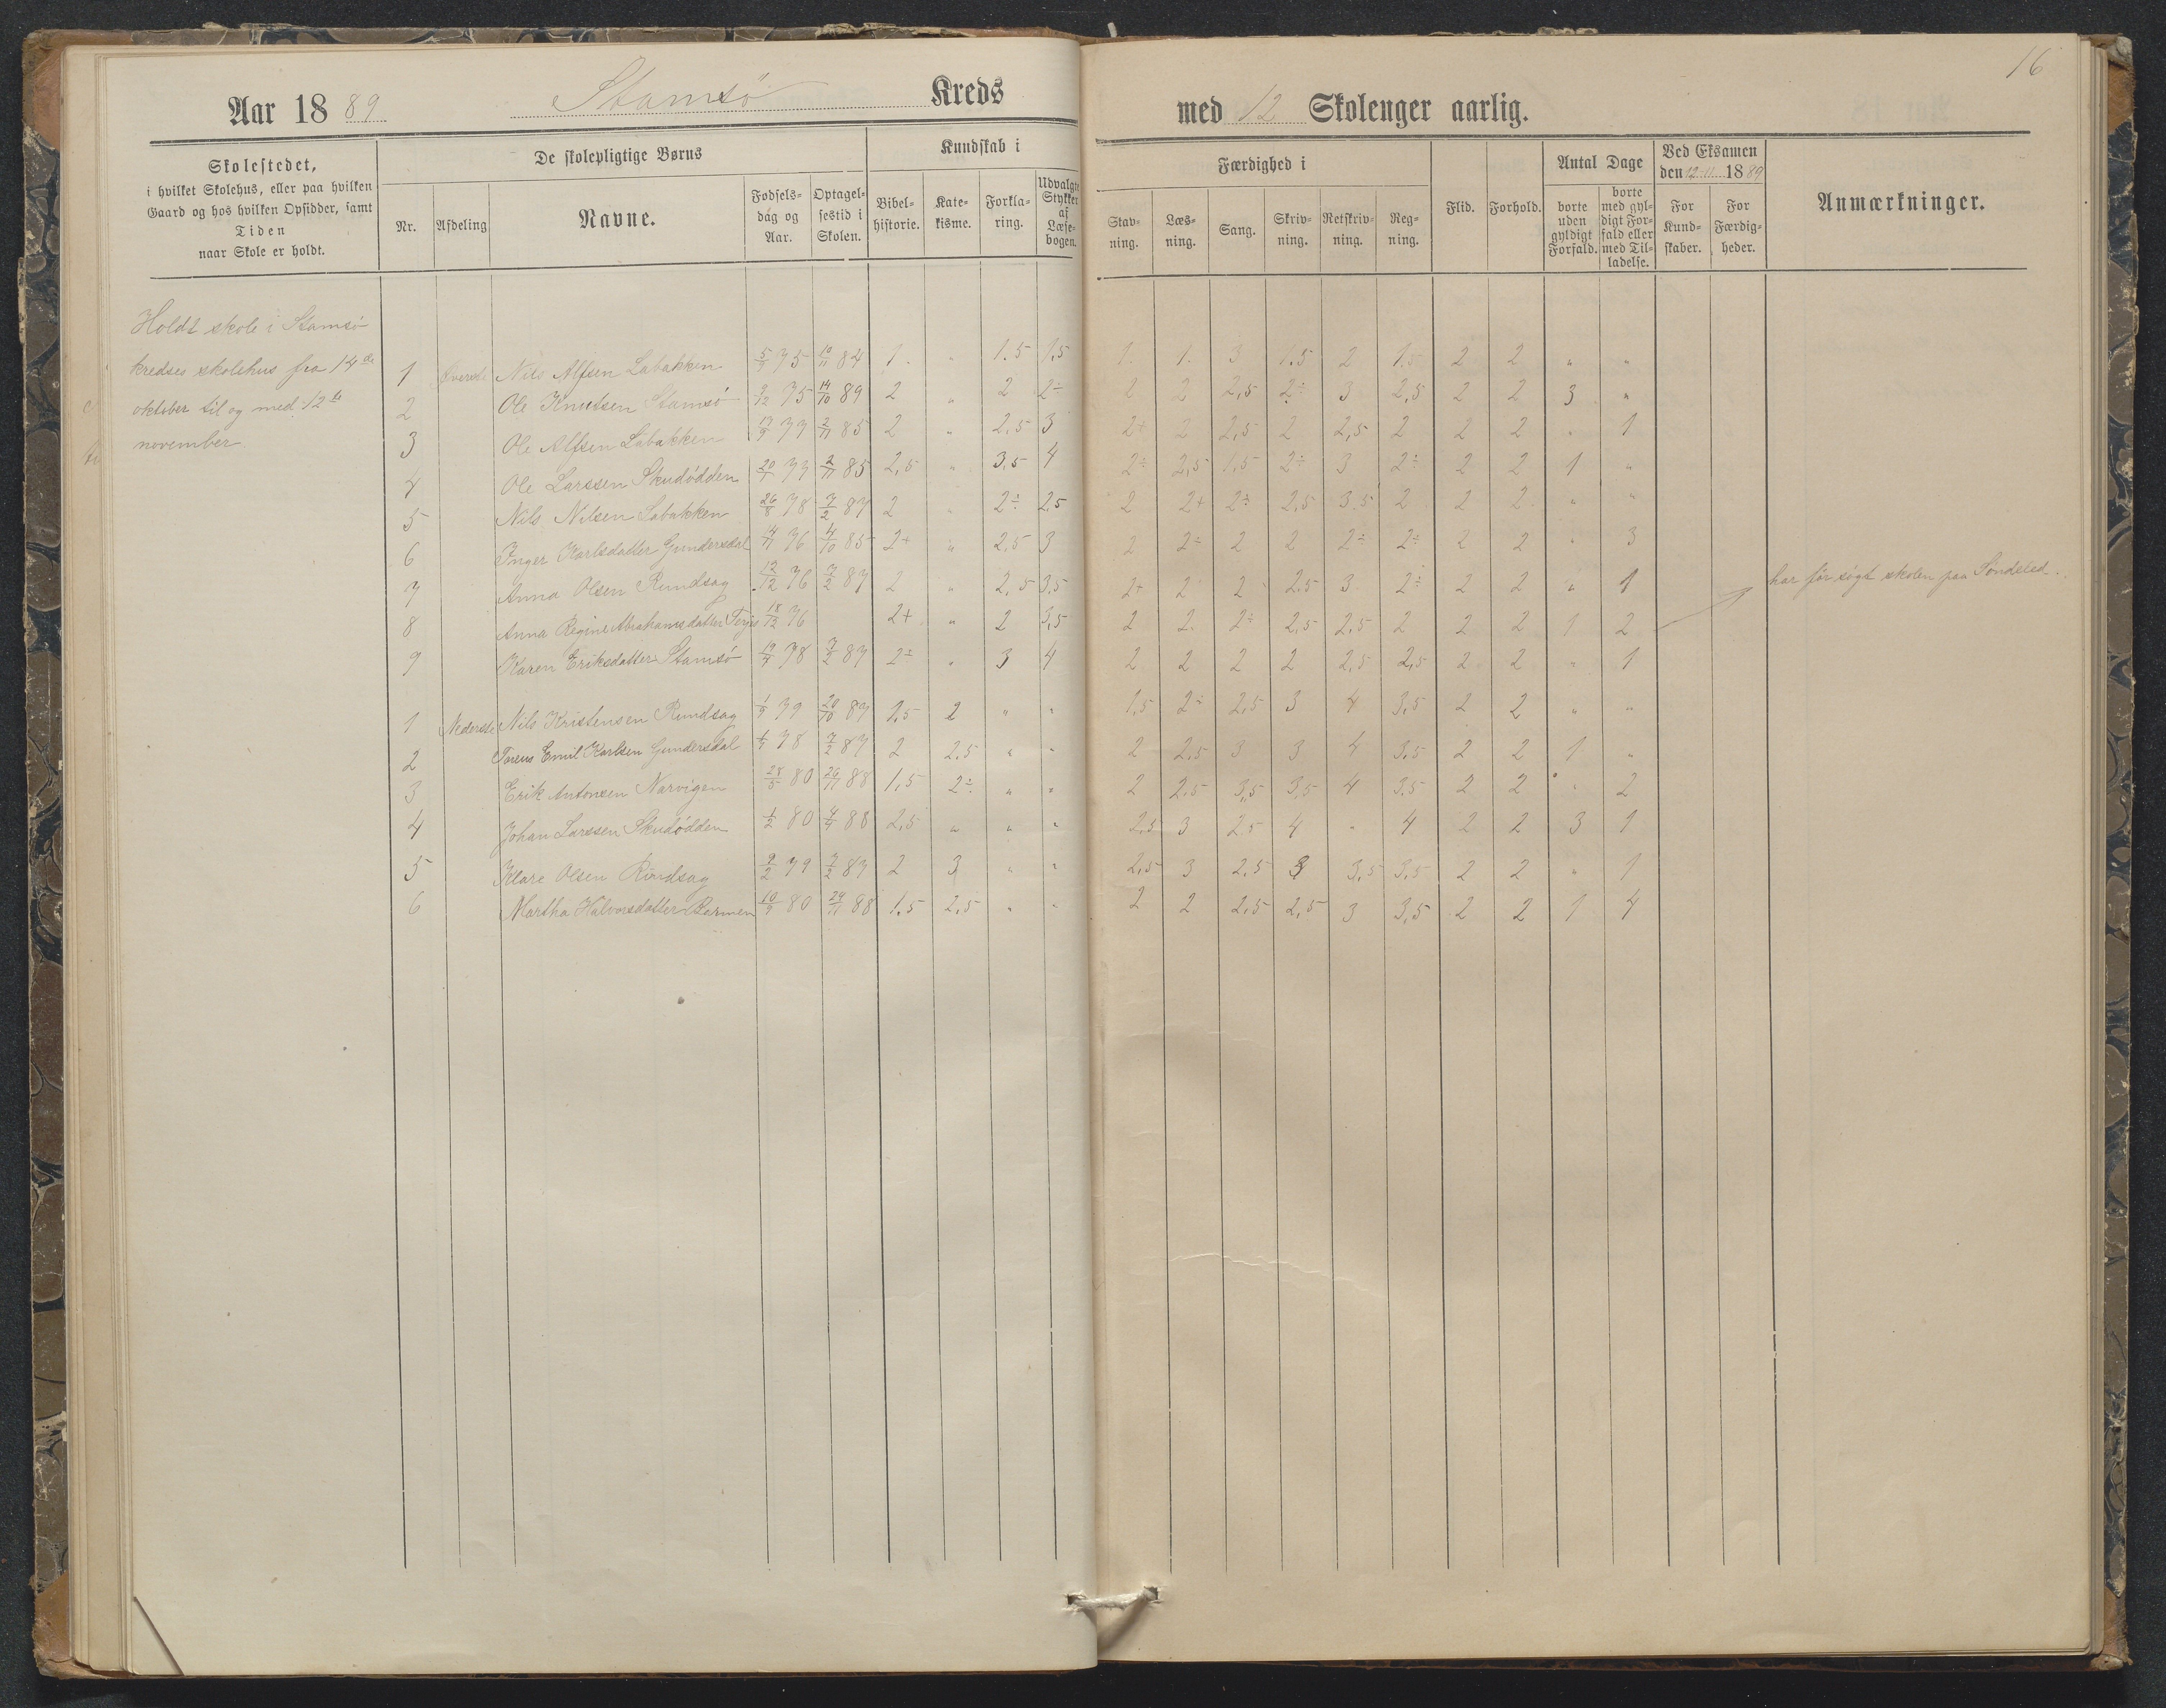 16
Aar 1889 Stamsø Kreds med 12 Skolenger aarlig.
Skolestedet,
i hvilket Skolehus, eller paa hvilken
Gaard og hos hvilken Opsidder, samt
Tiden
naar Skole er holdt.
De skolepligtige Børns
Nr. Afdeling Navne. Fødselsdag og Aar. Optagelsestid i Skolen.
Kundskab i
Bibelhistorie. Katekisme. Forklaring. Udvalgte Stykker af Læsebogen.
Færdighed i
Stavning. Læsning. Sang. Skrivning. Retskrivning. Regning.
Flid. Forhold.
Antal Dage
borte uden gyldigt Forfald. borte med gyldigt Forfald eller med Tilladelse.
Ved Eksamen
den 12-11 1889
For Kundskaber. For Færdigheder.
Anmærkninger.
Holdt skole i Stamsø
kredses skolehus fra 14de
oktober til og med 12te
november.
1 Øverste Nils Alfsen Labakken 5/9 75 10/11 84 1 „ 1.5 1,5 1. 1. 3 1.5 2 1.5 2 2 „ „
2 Ole Knutsen Stamsø 2/12 75 14/10 89 2 „ 2 2÷ 2 2 2,5 2÷ 3 2,5 2 2 3 „
3 Ole Alfsen Labakken 17/9 77 2/11 85 2 „ 2.5 3 2+ 2 2,5 2 2,5 2 2 2 „ 1
4 Ole Larssen Skudødden 20/7 77 2/11 85 2,5 „ 3.5 4 2÷ 2,5 1,5 2÷ 3 2÷ 2 2 1 „
5 Nils Nilsen Labakken 26/8 78 7/2 87 2 „ 2÷ 25 2 2+ 2÷ 2.5 3.5 2 2 2 „ „
6 Inger Karlsdatter Gundersdal 14/11 76 4/10 85 2+ „ 2.5 3 2 2÷ 2 2 2÷ 2÷ 2 2 „ 3
7 Anna Olsen Rundsag 12/12 76 7/2 87 2 „ 2,5 3,5 2+ 2 2 2.5 3 2÷ 2 2 „ 1
8 Anna Regine Abrahamsdatter 18/12 76 2+ „ 2 3,5 2 2 2÷ 2,5 2,5 2 2 2 1 2 har før søgt skolen paa Søndeled.
9 Karen Eriksdatter Stamsø 19/7 78 7/2 87 2÷ „ 3 4 2 2 2 2 2,5 2,5 2 2 „ 1
1 Nederste Nils Kristensen Rundsag 1/9 79 20/10 87 1.5 2 „ „ 1,5 2÷ 2,5 3 4 3,5 2 2 „ „
2 Emil Karlsen Gundersdal 78 7/2 87 2 2.5 „ „ 2 2.5 3 3 4 3.5 2 2 1 „
3 Erik Antonsen Narvigen 80 26/11 88 1,5 2÷ „ „ 2 2.5 3,5 3,5 4 3.5 2 2 „ 2
4 Johan Larssen Skudødden 1/2 80 88 2,5 „ „ „ 2.5 3 2.5 4 „ 4 2 2 3 1
5 Klare Olsen Rundsag 9/2 79 7/2 87 2 3 „ „ 2,5 3 2.5 3 3,5 3,5 2 2 „ 1
6 Martha Halvorsdatter 10/9 80 24/11 88 1.5 2,5 „ „ 2 2 2,5 2,5 3 3,5 2 2 1 4